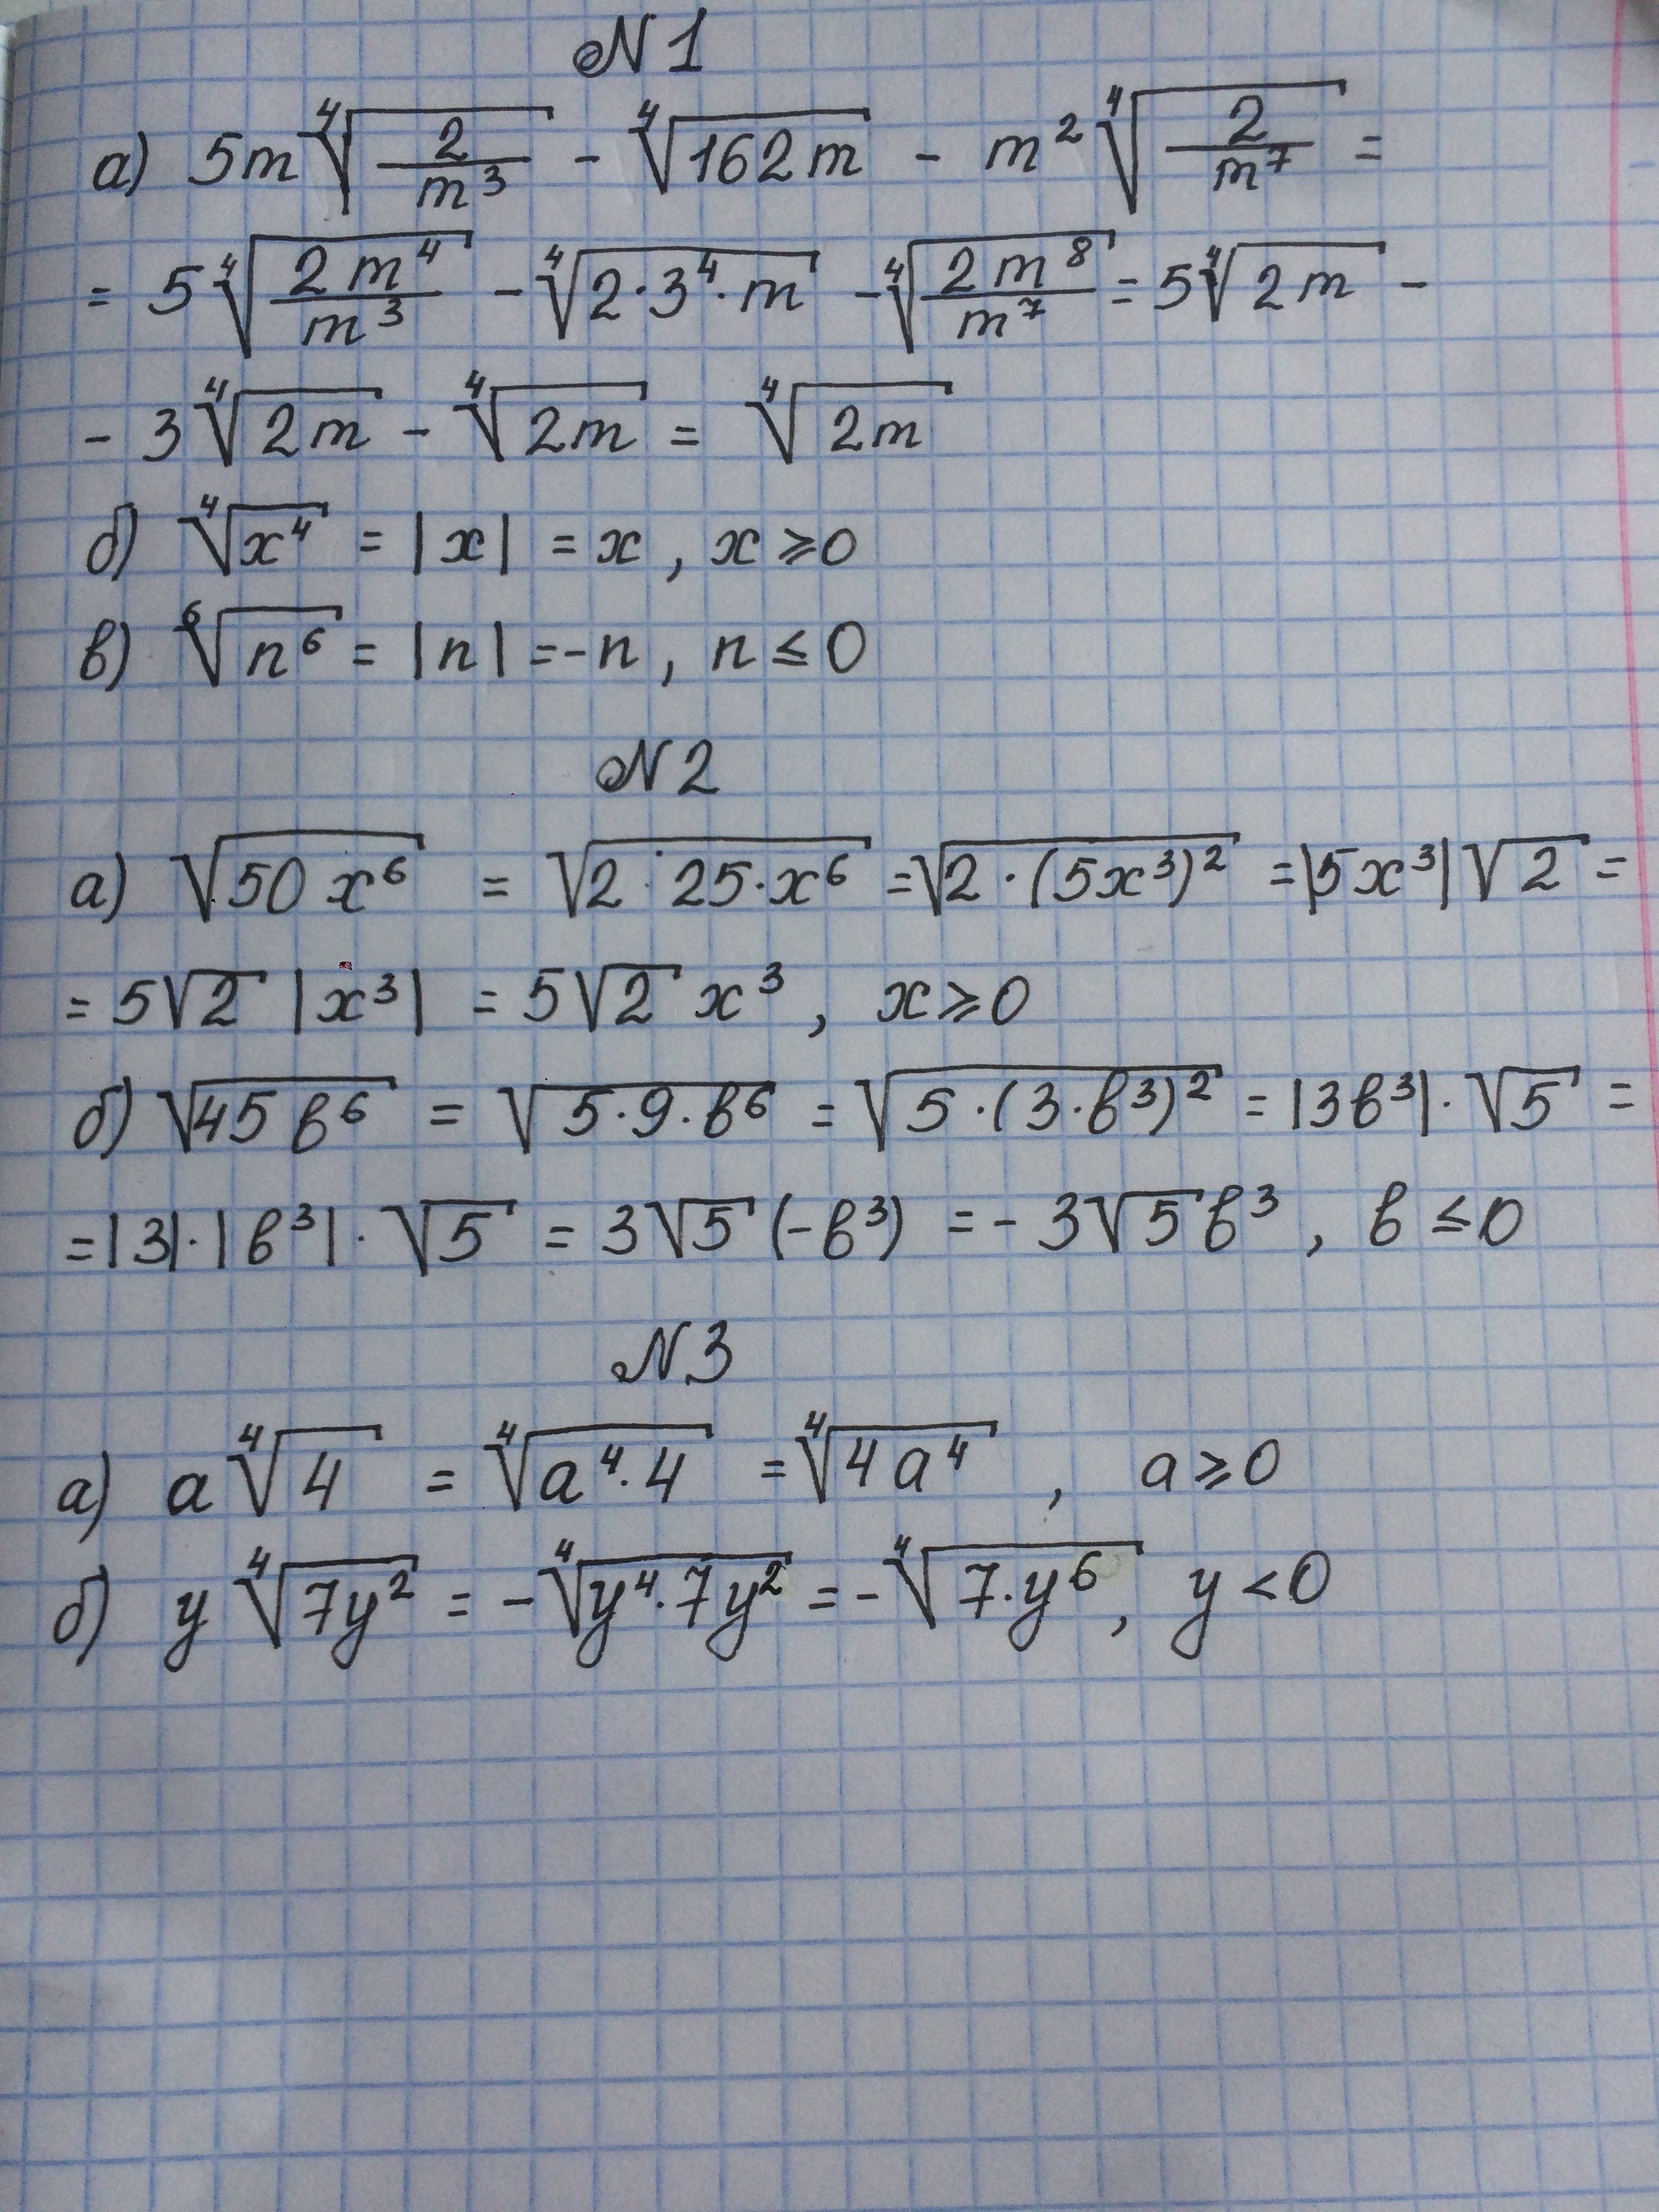 №1
а) 5m ∜(2/m³) - ∜(162m) - m² ∜(2/m⁷) =
= 5 ∜(2m⁴/m³) - ∜(2·3⁴·m) - ∜(2m⁸/m⁷) = 5 ∜(2m) -
- 3 ∜(2m) - ∜(2m) = ∜(2m)
б) ∜(x⁴) = |x| = x, x ⩾ 0
в) ⁶√(n⁶) = |n| = -n, n ≤ 0
№2
а) √(50x⁶) = √(2·25·x⁶) = √(2·(5x³)²) = |5x³| √2 =
= 5√2 |x³| = 5√2 x³, x ⩾ 0
б) √(45b⁶) = √(5·9·b⁶) = √(5·(3·b³)²) = |3b³|·√5 =
= |3|·|b³|·√5 = 3√5 (-b³) = - 3√5 b³, b ≤ 0
№3
а) a ∜4 = ∜(a⁴·4) = ∜(4a⁴), a ⩾ 0
б) y ∜(7y²) = - ∜(y⁴·7y²) = - ∜(7·y⁶), y < 0